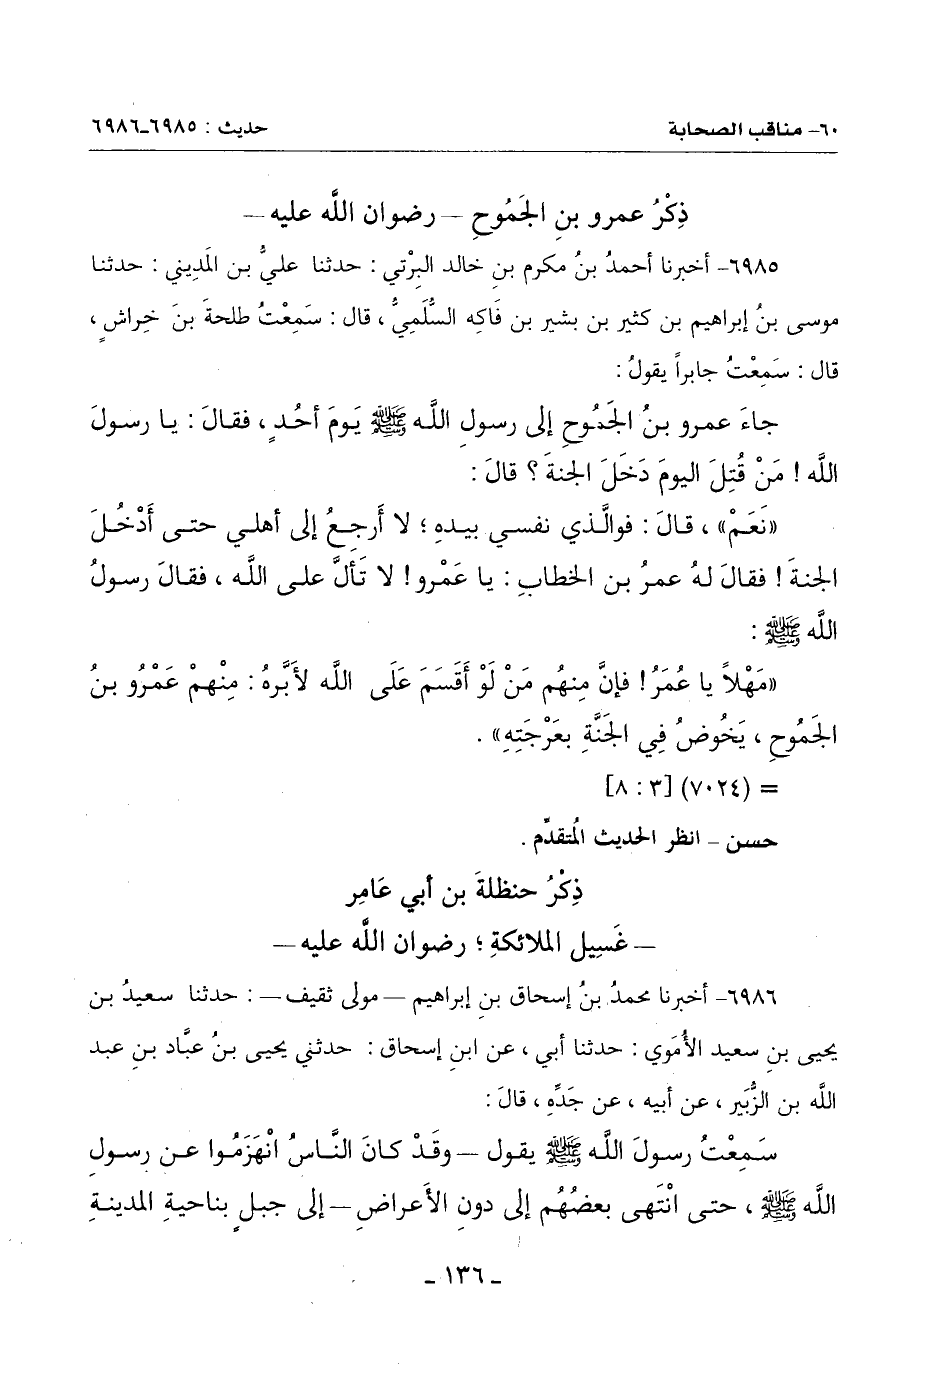 ٦٠- مناقب الصحابة
حديث : ٦٩٨٥-٦٩٨٦
ذِكْرُ عمرو بنِ الجَمُوحِ – رضوان اللَّه عليه –
٦٩٨٥- أخبرنا أحمدُ بنُ مكرم بنِ خالد البِرْتي : حدثنا عليُّ بن المَدِيني : حدثنا
موسى بنُ إبراهيم بن كثير بن بشير بن فَاكِه السُّلَمِيُّ ، قال : سَمِعْتُ طلحةَ بنَ خِراشٍ ،
قال : سَمِعْتُ جابراً يقولُ :
جاءَ عمرو بنُ الجَمُوحِ إلى رسولِ اللَّـه ﷺ يَومَ أحُـدٍ ، فقالَ : يـا رسولَ
اللَّه ! مَنْ قُتِلَ اليومَ دَخَلَ الجنةَ ؟ قالَ :
«نَعَمْ» ، قالَ : فوالَّذي نفسـي بيـدهِ ؛ لا أَرجـعُ إلى أهلـي حتـى أَدْخُـلَ
الجنةَ ! فقالَ لهُ عمرُ بن الخطابِ : يا عَمْرو ! لا تَألَّ علـى اللَّه ، فقالَ رسـولُ
اللَّه ﷺ :
«مَهْلاً يا عُمَرُ ! فإنَّ مِنهُم مَنْ لَوْ أَقَسَمَ عَلَى اللَّه لأَبَّرهُ : مِنْهمْ عَمْرُو بـنُ
الجَمُوحِ ، يَخُوضُ فِي الجَنَّةِ بعَرْجَتِهِ» .
= (٧٠٢٤) [٣ : ٨]
حسـن – انظر الحديث المُتقدِّم .
ذِكْرُ حنظلةَ بن أبي عَامِر
– غَسِيل الملائكةِ ؛ رضوان اللَّه عليه –
٦٩٨٦- أخبرنا محمدُ بنُ إسحاق بنِ إبراهيم – مولى ثقيف – : حدثنا سعيدُ بن
يحيى بنِ سعيد الأُمَوي : حدثنا أبي ، عن ابنِ إسحاق : حدثني يحيى بنُ عبَّاد بنِ عبد
اللَّه بن الزُّبَير ، عن أبيه ، عن جَدِّه ، قالَ :
سَمِعْتُ رسولَ اللَّـه ﷺ يقول – وقَدْ كانَ النَّاسُ انْهَزَمُوا عـن رسولِ
اللَّه ﷺ ، حتـى انْتَهى بعضُهُم إلى دونِ الأَعراضِ – إلى جبلٍ بناحيةِ المدينـةِ
- ١٣٦ -